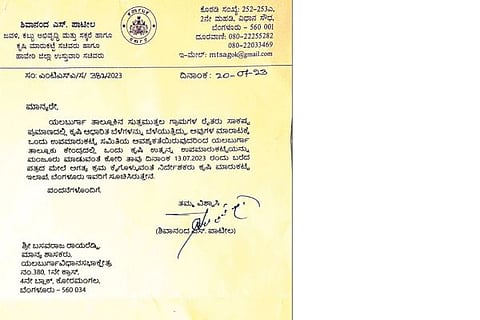 ಶಿವಾನಂದ ಎಸ್. ಪಾಟೀಲ
ಜವಳಿ, ಕಬ್ಬು ಅಭಿವೃದ್ಧಿ ಮತ್ತು ಸಕ್ಕರೆ ಹಾಗೂ
ಕೃಷಿ ಮಾರುಕಟ್ಟೆ ಸಚಿವರು ಹಾಗೂ
ಹಾವೇರಿ ಜಿಲ್ಲಾ ಉಸ್ತುವಾರಿ ಸಚಿವರು
ಕೊಠಡಿ ಸಂಖ್ಯೆ: 252-253ಎ,
2ನೇ ಮಹಡಿ, ವಿಧಾನ ಸೌಧ,
ಬೆಂಗಳೂರು - 560 001
ದೂರವಾಣಿ: 080-22255282
080-22033469
ಇ-ಮೇಲ್: mtsagok@gmail.com
ಸಂ: ಎಂಟಿಎಸ್‌ಎ/ಸ/ 391/2023
ದಿನಾಂಕ: 20-07-23
ಮಾನ್ಯರೇ,
ಯಲಬುರ್ಗಾ ತಾಲ್ಲೂಕಿನ ಸುತ್ತಮುತ್ತಲ ಗ್ರಾಮಗಳ ರೈತರು ಸಾಕಷ್ಟು
ಪ್ರಮಾಣದಲ್ಲಿ ಕೃಷಿ ಆಧಾರಿತ ಬೆಳೆಗಳನ್ನು ಬೆಳೆಯುತ್ತಿದ್ದು, ಅವುಗಳ ಮಾರಾಟಕ್ಕೆ
ಒಂದು ಉಪಮಾರುಕಟ್ಟೆ ಸಮಿತಿಯ ಅವಶ್ಯಕತೆಯಿರುವುದರಿಂದ ಯಲಬುರ್ಗಾ
ತಾಲ್ಲೂಕು ಕೇಂದ್ರದಲ್ಲಿ ಒಂದು ಕೃಷಿ ಉತ್ಪನ್ನ ಉಪಮಾರುಕಟ್ಟೆಯನ್ನು
ಮಂಜೂರು ಮಾಡುವಂತೆ ಕೋರಿ ತಾವು ದಿನಾಂಕ 13.07.2023 ರಂದು ಬರೆದ
ಪತ್ರದ ಮೇಲೆ ಅಗತ್ಯ ಕ್ರಮ ಕೈಗೊಳ್ಳುವಂತೆ ನಿರ್ದೇಶಕರು ಕೃಷಿ ಮಾರುಕಟ್ಟೆ
ಇಲಾಖೆ, ಬೆಂಗಳೂರು ಇವರಿಗೆ ಸೂಚಿಸಿರುತ್ತೇನೆ.
ವಂದನೆಗಳೊಂದಿಗೆ,
ತಮ್ಮ ವಿಶ್ವಾಸಿ
(ಶಿವಾನಂದ ಎಸ್. ಪಾಟೀಲ)
ಶ್ರೀ ಬಸವರಾಜ ರಾಯರೆಡ್ಡಿ,
ಮಾನ್ಯ ಶಾಸಕರು,
ಯಲಬುರ್ಗಾವಿಧಾನಸಭಾಕ್ಷೇತ್ರ,
ನಂ.380, 1ನೇ ಕ್ರಾಸ್,
4ನೇ ಬ್ಲಾಕ್, ಕೋರಮಂಗಲ,
ಬೆಂಗಳೂರು - 560 034